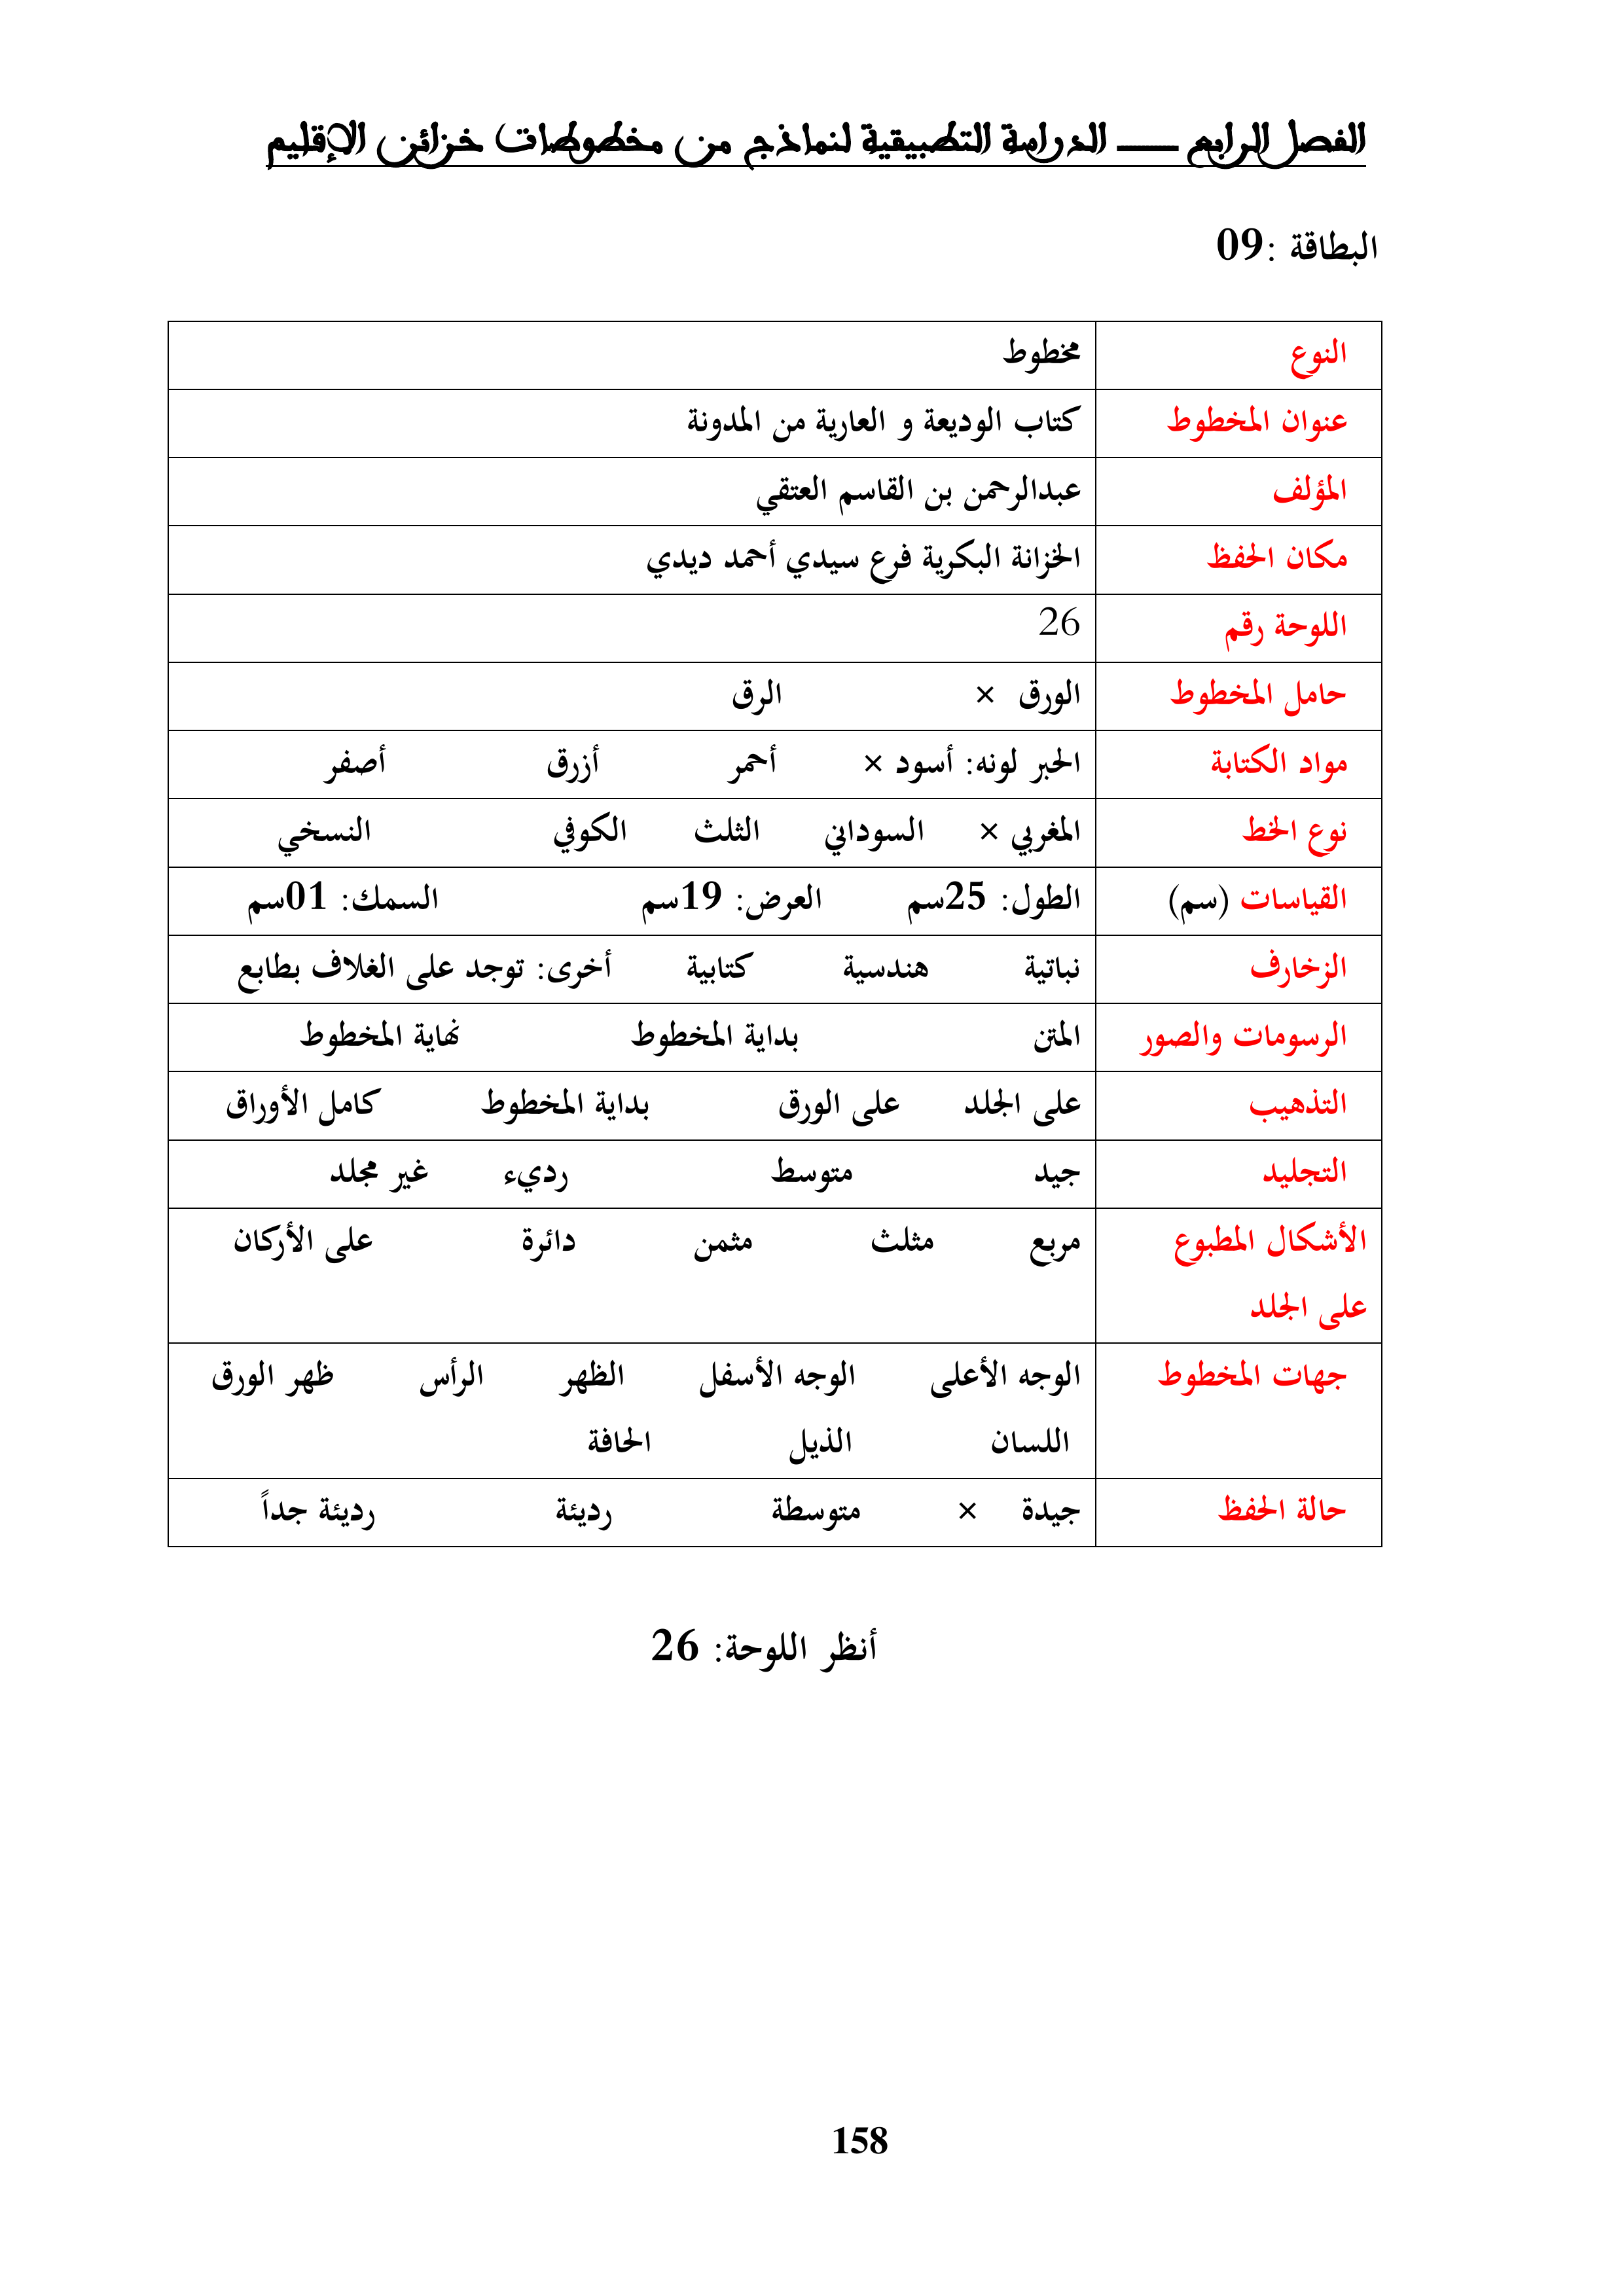 الفصل الرابع ــــــ الدراسة التطبيقية لنماذج من مخطوطات خزائن الإقليم
البطاقة :09
النوع مخطوط
عنوان المخطوط كتاب الوديعة و العارية من المدونة
المؤلف عبدالرحمن بن القاسم العتقي
مكان الحفظ الخزانة البكرية فرع سيدي أحمد ديدي
اللوحة رقم 26
حامل المخطوط الورق × الرق
مواد الكتابة الحبر لونه: أسود × أحمر أزرق أصفر
نوع الخط المغربي × السوداني الثلث الكوفي النسخي
القياسات (سم) الطول: 25سم العرض: 19سم السمك: 01سم
الزخارف نباتية هندسية كتابية أخرى: توجد على الغلاف بطابع
الرسومات والصور المتن بداية المخطوط نهاية المخطوط
التذهيب على الجلد على الورق بداية المخطوط كامل الأوراق
التجليد جيد متوسط رديء غير مجلد
الأشكال المطبوع مربع مثلث مثمن دائرة على الأركان
على الجلد
جهات المخطوط الوجه الأعلى الوجه الأسفل الظهر الرأس ظهر الورق
اللسان الذيل الحافة
حالة الحفظ جيدة × متوسطة رديئة رديئة جداً
أنظر اللوحة: 26
158